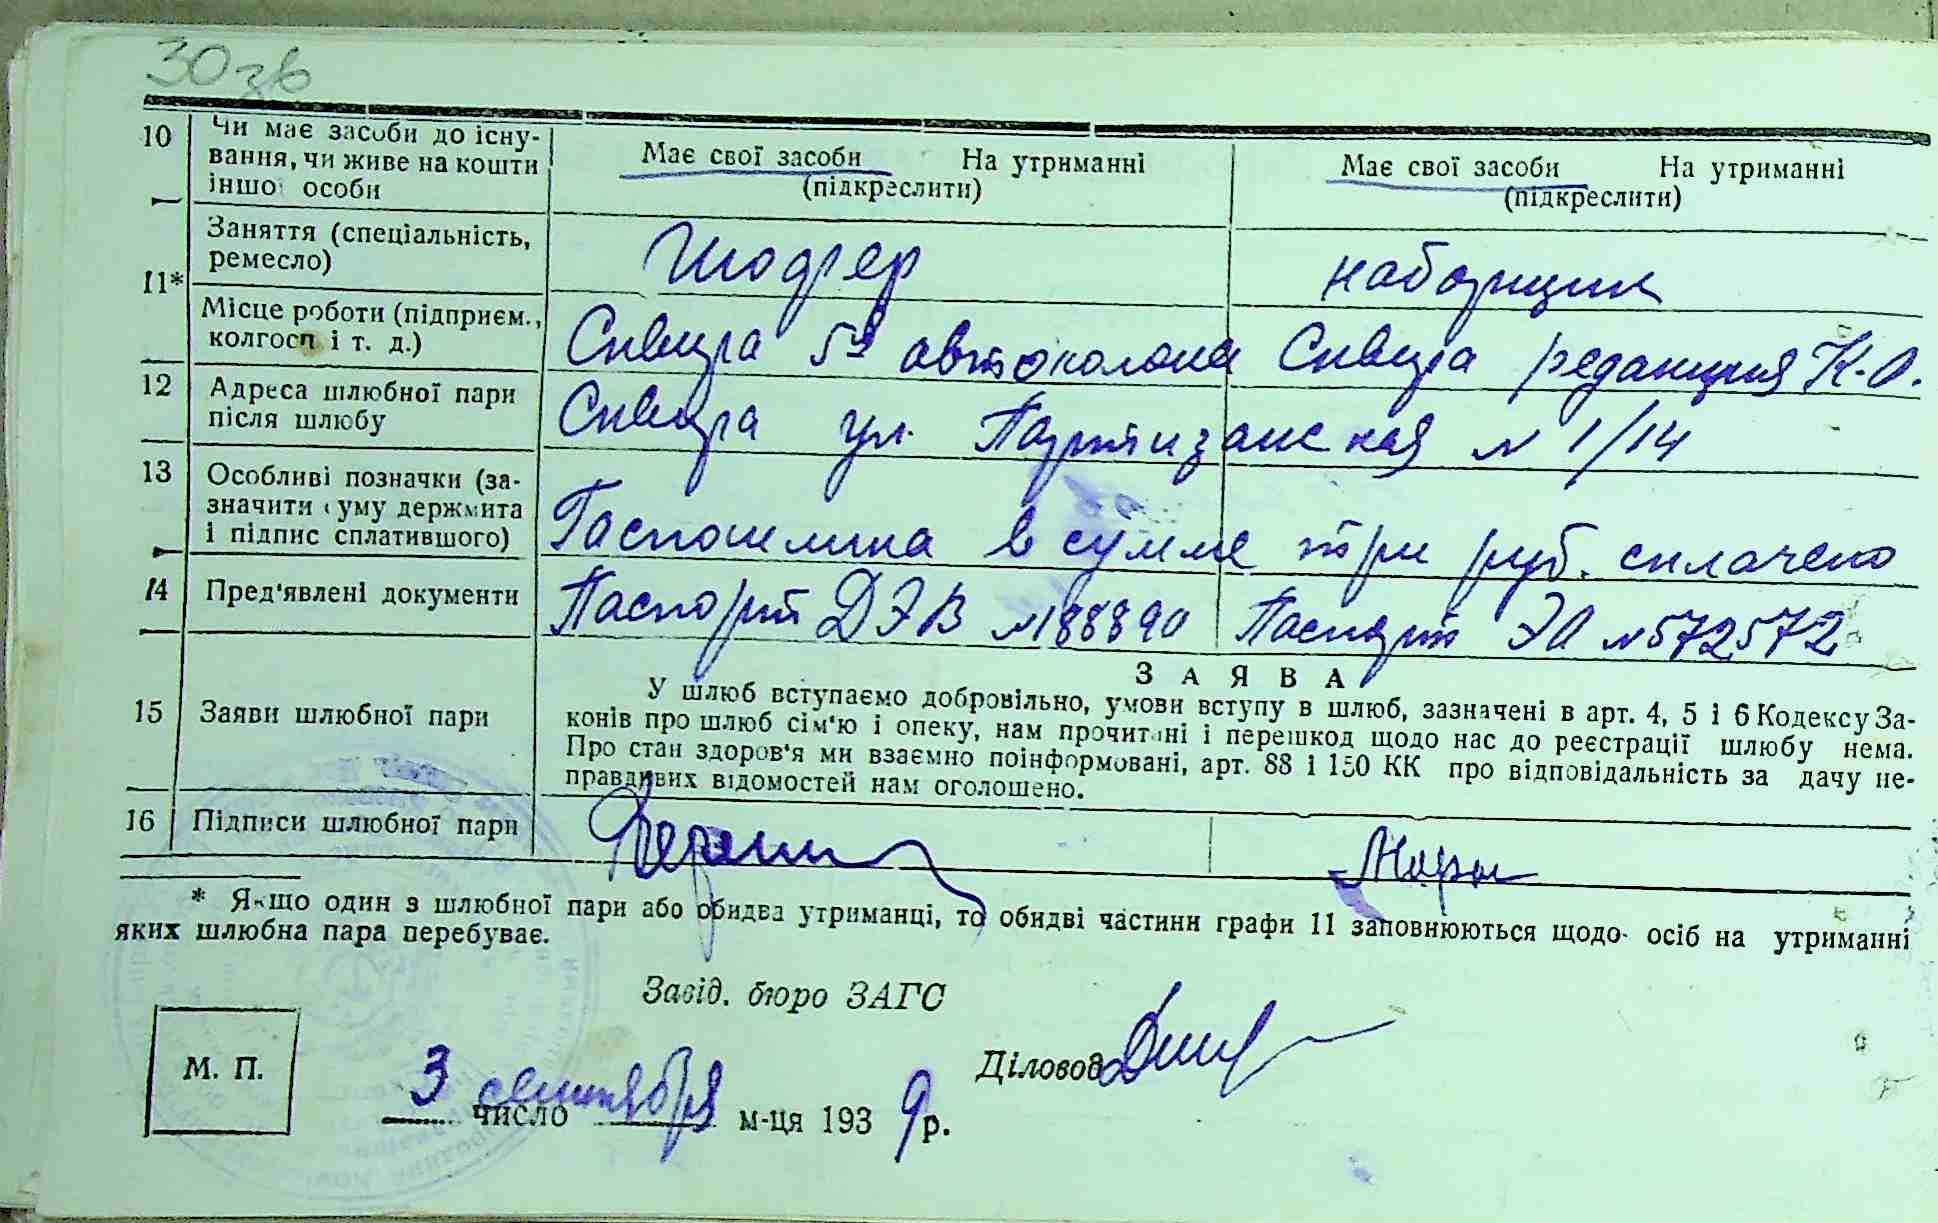 30 зв
10 Чи має засоби до існу-
вання, чи живе на кошти
іншої особи
Має свої засоби На утриманні
(підкреслити)
Має свої засоби На утриманні
(підкреслити)
11* Заняття (спеціальність,
ремесло)
Шофер
наборщик
Місце роботи (підприєм.,
колгосп і т. д.)
Сквира 5я автоколона
Сквира редакция К-О.
12 Адреса шлюбної пари
після шлюбу
Сквира ул. Партизанская № 1/14
13 Особливі позначки (за-
значити суму держмита
і підпис сплатившого)
Госпошлина в сумме три руб. сплачено
14 Пред'явлені документи
Паспорт ДЭВ №188890
Паспорт ЭО №572572
15 Заяви шлюбної пари
ЗАЯВА
У шлюб вступаємо добровільно, умови вступу в шлюб, зазначені в арт. 4, 5 і 6 Кодексу За-
конів про шлюб сім'ю і опеку, нам прочитані і перешкод щодо нас до реєстрації шлюбу нема.
Про стан здоров'я ми взаємно поінформовані, арт. 88 і 150 КК про відповідальність за дачу не-
правдивих відомостей нам оголошено.
16 Підписи шлюбної пари
* Якщо один з шлюбної пари або обидва утриманці, то обидві частини графи 11 заповнюються щодо осіб на утриманні
яких шлюбна пара перебуває.
Завід. бюро ЗАГС
Діловод
М. П.
3 сентября
число м-ця 1939 р.